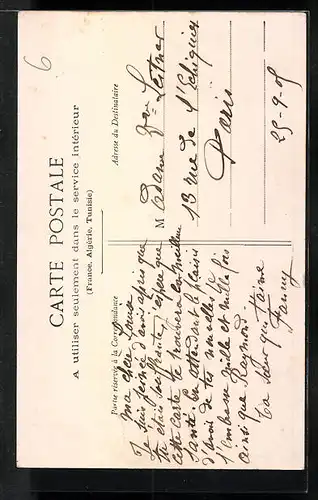 6
CARTE POSTALE
A utiliser seulement dans le service intérieur
(France, Algérie, Tunisie)
Partie réservée à la Correspondance
Adresse du Destinataire
ma chère Louise
Je suis peinée d'avoir appris que
tu étais souffrante, espère que
cette carte te trouvera en meilleure
santé. en attendant le plaisir
d'avoir de tes nouvelles je
t'embrasse mille et mille fois
ainsi que Raymond.
ta sœur qui t'aime
Fanny
Madame Vve
13 rue de
Paris
25-9-